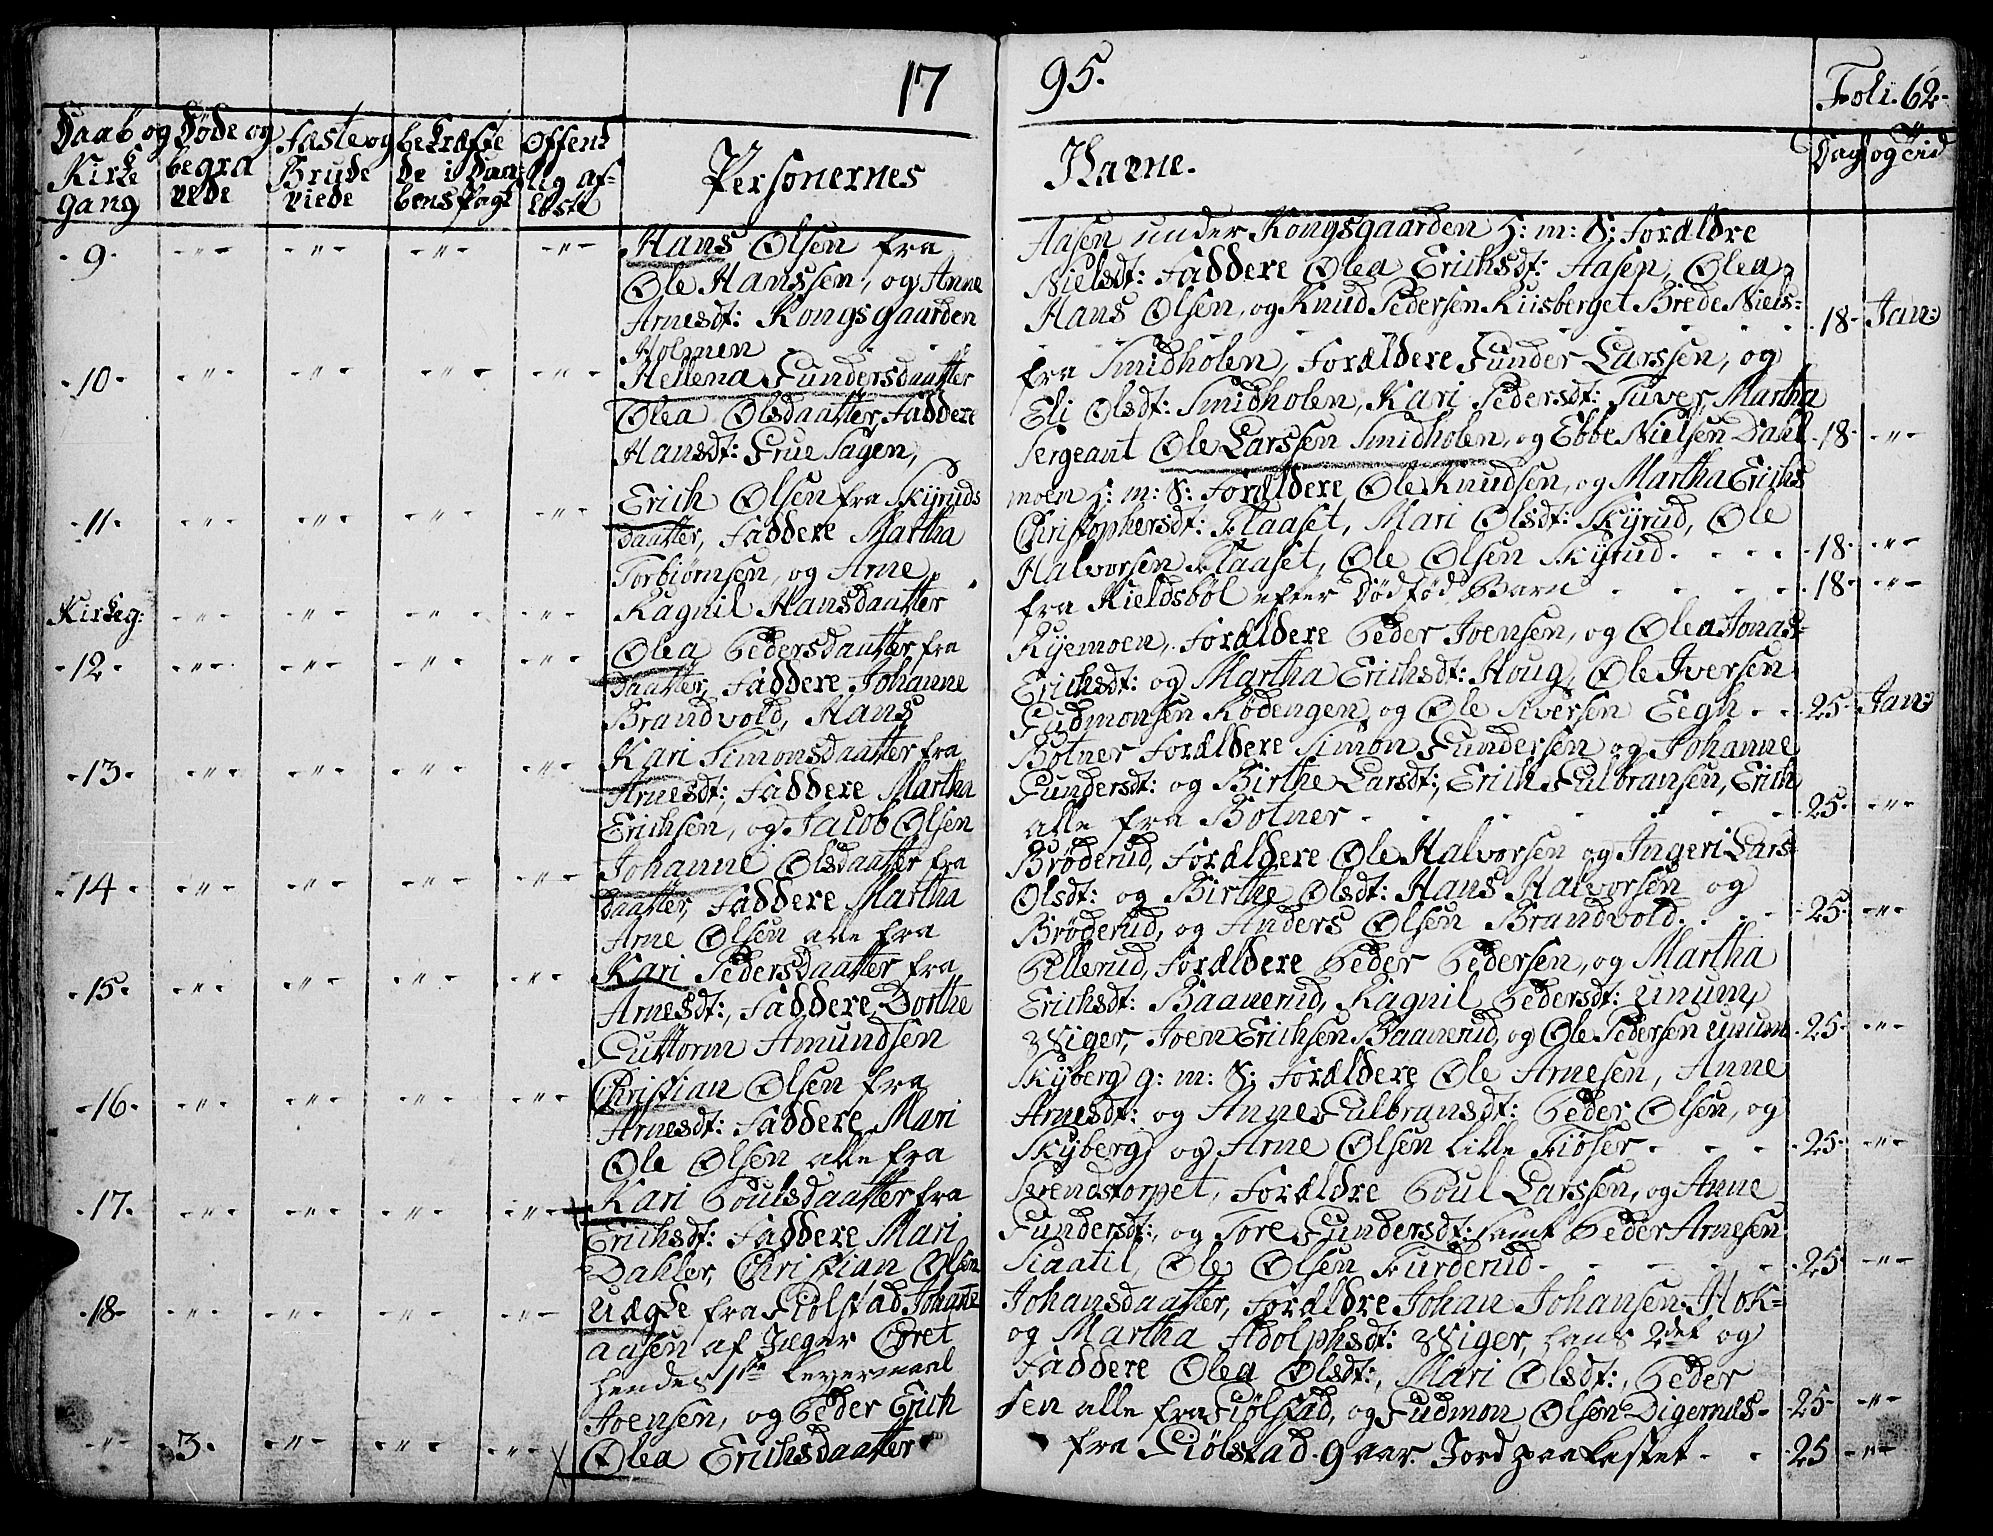 17 95. Foli. 62.
Daab og Kirke gang
Døde og begra vede
Fæste og Brude viede
bekræfte de i Daa= bens pagt
Offent lig af= løste
Personernes Navne.
Dag og Tid
9. Hans Olsen fra Aasen under Kongsgaarden H: m: S: Forældre
Ole Hanssen, og Anne Nielsdt: Faddere Olea Erichsdt: Aasen, Olea
Arnesdt: Kongsgaarden Hans Olsen, og Knud Pedersen Kiisberget Brede Niels=
Holmen 18 Jan:
10. Hellena Gundersdaatter fra Smidholen, Forældere Gunder Larssen, og
Olea Olsdaatter, Faddere Eli Olsdt: Smidholen, Kari Pedersdt: Tuver, Martha
Hansdt: Grue Hagen, Sergeant Ole Larssen Smidholen, og Ebbe Nielsen Dahl 18
11. Erich Olsen fra Skyruds moen H: m: S: Forældere Ole Knudsen, og Martha Erichs
daatter, Faddere Martha Christophersdt: Flaaset, Mari Olsdt: Skyrud, Ole
Torbiørnsen, og Arne Halvorsen Flaaset, Ole Olsen Skyrud 18
Kirkeg: Ragnil Hansdaatter fra Kieldsbøl efter Dødfød Barn 18
12. Olea Pedersdaatter fra Ryemoen, Forældere Peder Joensen, og Olea Jonas=
daatter, Faddere Johanne Erichsdt: og Martha Erichsdt: Houg, Ole Iversen
Brandvold, Hans Gudmonsen Rødengen og Ole Siversen Eegh 25 Jan:
13. Kari Simonsdaatter fra Botner Forældere Simon Gundersen og Johanne
Arnesdt: Faddere Martha Gundersdt: og Birthe Larsdt:, Erich Gulbransen, Erich
Erichsen, og Jacob Olsen alle fra Botner 25
14. Johanne Olsdaatter fra Brøderud, Forældere Ole Halvorsen og Ingeri Lars
daatter, Faddere Martha Olsdt: og Birthe Olsdt: Hans Halvorsen og
Arne Olsen alle fra Brøderud, og Anders Olsen Brandvold 25
15. Kari Pedersdaatter fra Pellerud, Forældere Peder Pedersen, og Martha
Arnesdt:, Faddere Dorthe Erichsdt: Baanerud, Ragnil Pedersdt: Unum,
Guttorm Amundsen Viger, Joen Erichsen Baanerud, og Ole Pedersen Unum 25
16. Christian Olsen fra Skyberg g: m: S: Forældere Ole Arnesen, Anne
Arnesdt: Faddere Mari Arnesdt: og Anne Gulbransdt: Peder Olsen, og
Ole Olsen alle fra Skyberg, og Arne Olsen lille Kiøser 25
17. Kari Poulsdaatter fra Serenstorpet, Forældre Poul Larssen, og Anne
Erichsdt: Faddere Mari Gundersdt:, og Tore Gundersdt: samt Peder Arnesen
Dahler, Christian Olsen Siaatil, Ole Olsen Furderud 25
18. Uægte fra Giølstad Johanne Johansdaatter, Forældre Johan Johansen Hok=
aasen af Jæger Corpset og Martha Adolphsdt: Viger, hans 2det og
hendes 1ste Leyermaal Faddere Olea Olsdt:, Mari Olsdt:, Peder
Joensen, og Peder Erich sen alle fra Giølstad, og Gudmon Olsen Digernæs 25
3. Olea Erichsdaatter fra Giølstad 9 aar. Jord paakastet 25